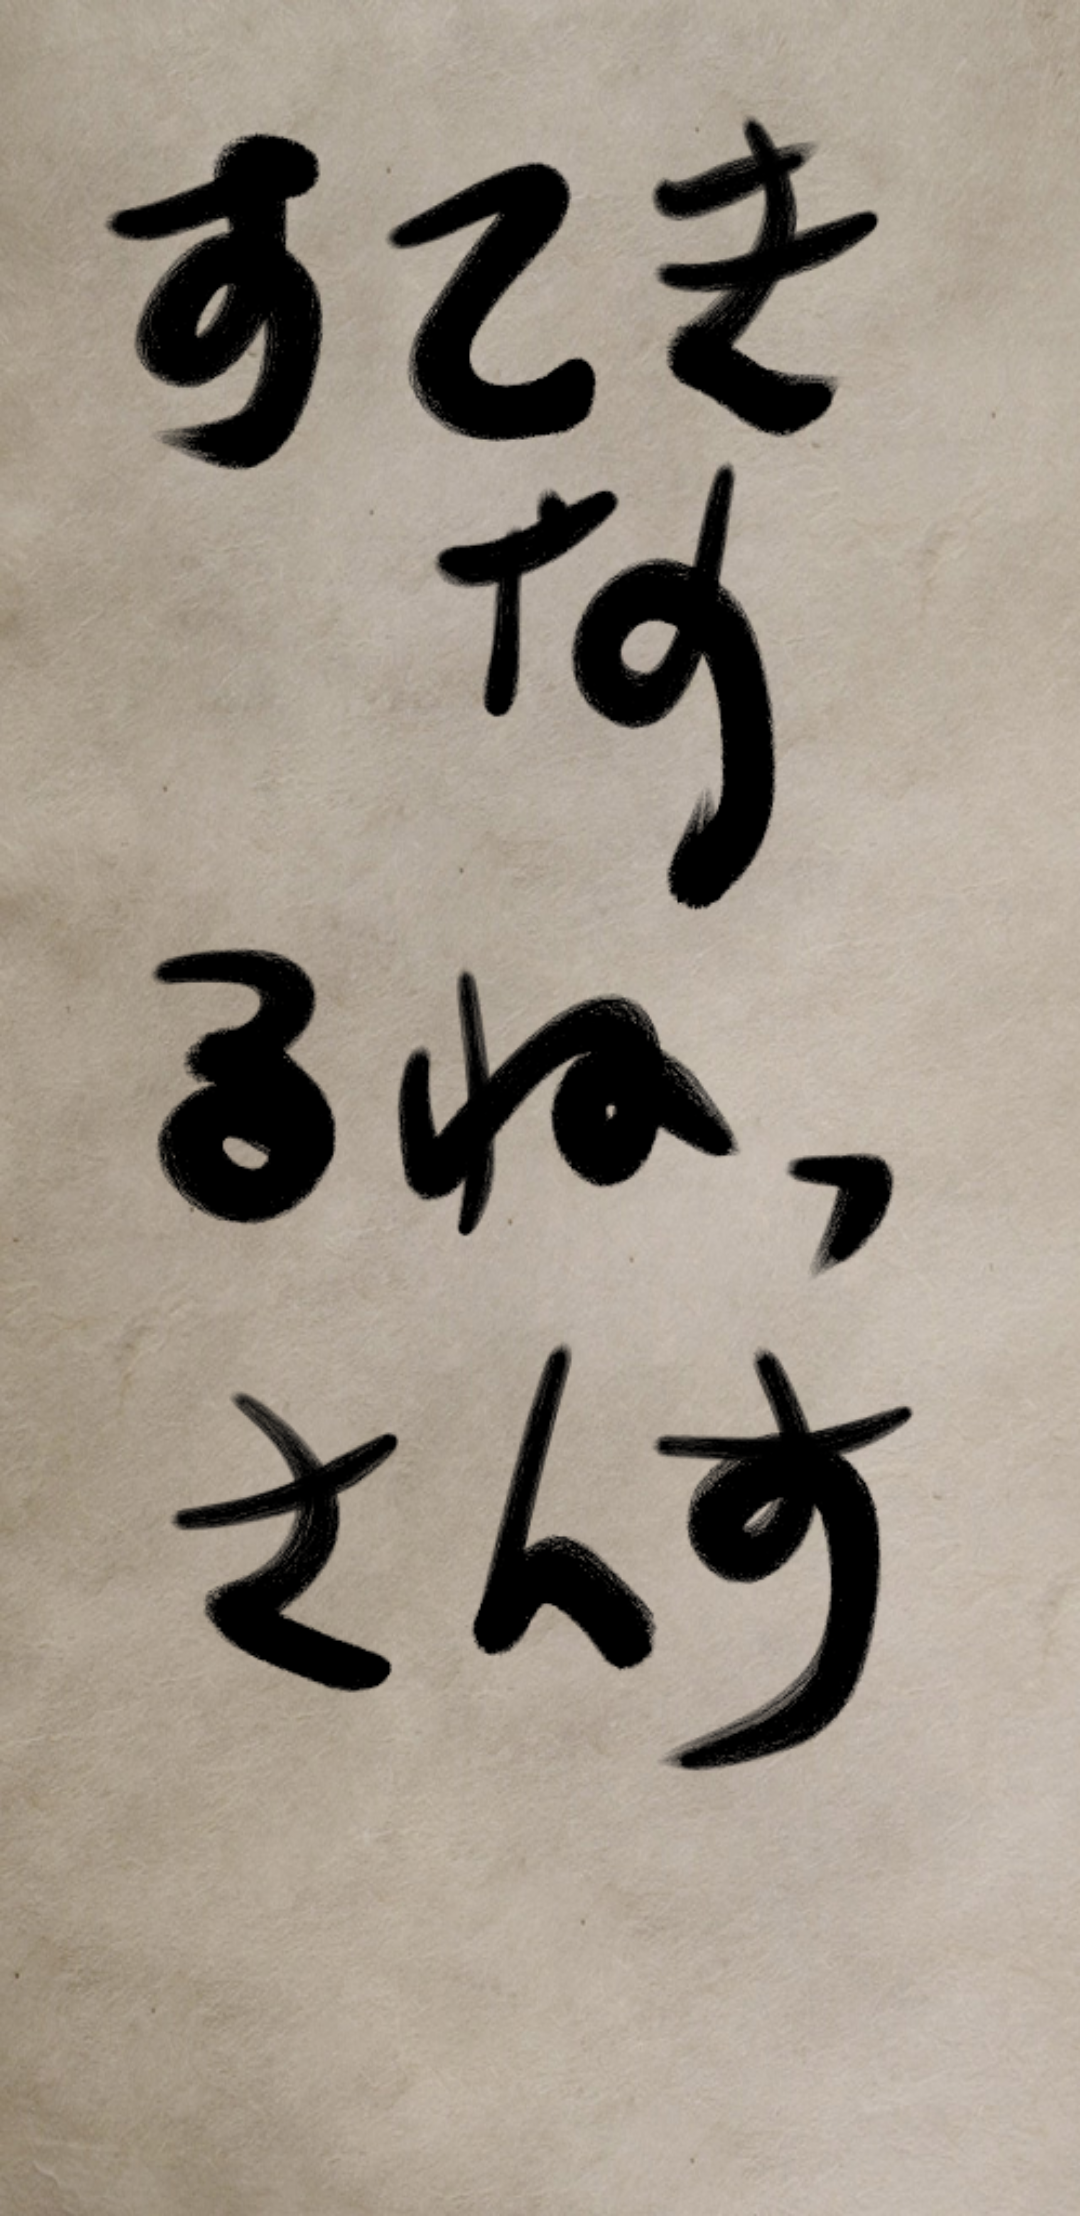 すてき
な
るねっ
さんす